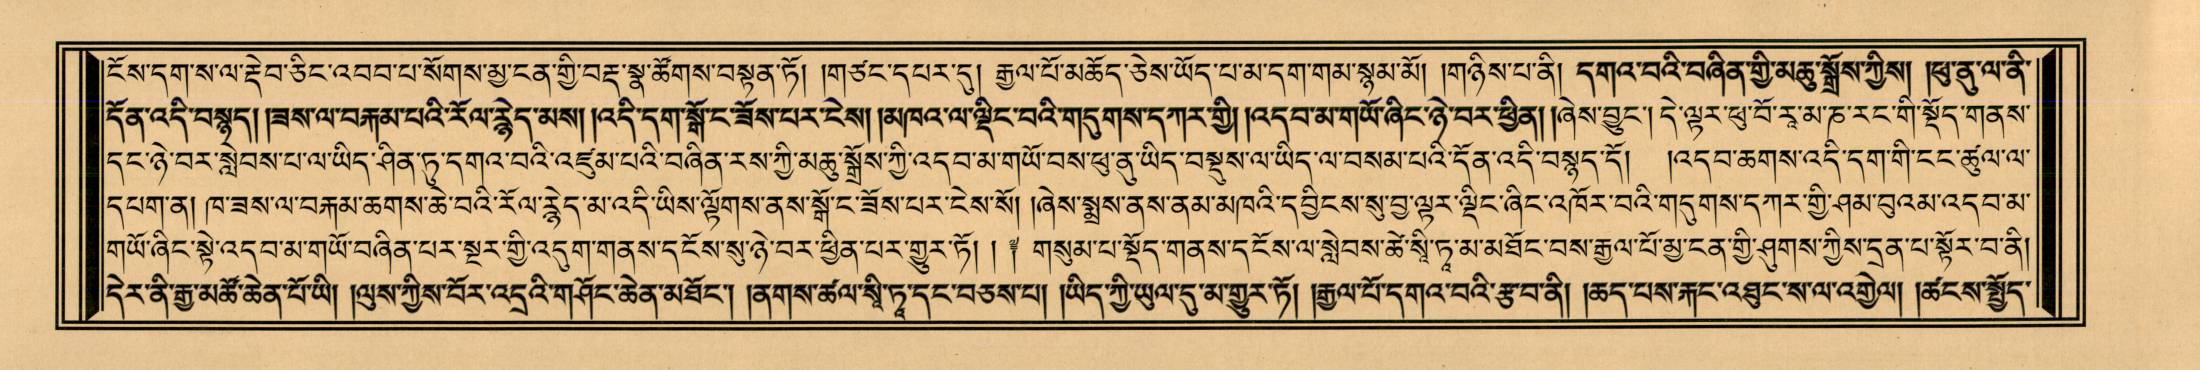 ངོས་དག་ས་ལ་རྡེབ་ཅིང་འབབ་པ་སོགས་མྱ་ངན་གྱི་བརྡ་སྣ་ཚོགས་བསྟན་ཏོ། །གཙང་དཔར་དུ། རྒྱལ་པོ་མཆོད་ཅེས་ཡོད་པ་མ་དག་གམ་སྙམ་མོ། །གཉིས་པ་ནི། དགའ་བའི་བཞིན་གྱི་མཆུ་སྒྲོས་ཀྱིས། །ཕུ་ནུ་ལ་ནི་
དོན་འདི་བསྙད། །ཟས་ལ་བརྐམ་པའི་རོལ་རྙེད་མས། །འདི་དག་སྒོ་ང་ཟོས་པར་ངེས། །མཁའ་ལ་ལྡིང་བའི་གདུགས་དཀར་གྱི། །འདབ་མ་གཡོ་ཞིང་ཉེ་བར་ཕྱིན། །ཞེས་བྱུང་། དེ་ལྟར་ཕུ་བོ་རཱ་མ་ཎ་རང་གི་སྡོད་གནས་
དང་ཉེ་བར་སླེབས་པ་ལ་ཡིད་ཤིན་ཏུ་དགའ་བའི་འཛུམ་པའི་བཞིན་རས་ཀྱི་མཆུ་སྒྲོས་ཀྱི་འདབ་མ་གཡོ་བས་ཕུ་ནུ་ཡིད་བསྡུས་ལ་ཡིད་ལ་བསམ་པའི་དོན་འདི་བསྙད་དོ། །འདབ་ཆགས་འདི་དག་གི་ངང་ཚུལ་ལ་
དཔག་ན། ཁ་ཟས་ལ་བརྐམ་ཆགས་ཆེ་བའི་རོལ་རྙེད་མ་འདི་ཡིས་ལྟོགས་ནས་སྒོ་ང་ཟོས་པར་ངེས་སོ། །ཞེས་སྨྲས་ནས་ནམ་མཁའི་དབྱིངས་སུ་བྱ་ལྟར་ལྡིང་ཞིང་འཁོར་བའི་གདུགས་དཀར་གྱི་ཤམ་བུའམ་འདབ་མ་
གཡོ་ཞིང་སྟེ་འདབ་མ་གཡོ་བཞིན་པར་སྔར་གྱི་འདུག་གནས་དངོས་སུ་ཉེ་བར་ཕྱིན་པར་གྱུར་ཏོ། ། ༈ གསུམ་པ་སྡོད་གནས་དངོས་ལ་སླེབས་ཚེ་སཱི་ཏཱ་མ་མཐོང་བས་རྒྱལ་པོ་མྱ་ངན་གྱི་ཤུགས་ཀྱིས་དྲན་པ་སྟོར་བ་ནི།
དེར་ནི་རྒྱ་མཚོ་ཆེན་པོ་ཡི། །ལུས་ཀྱིས་བོར་འདྲའི་གཤོང་ཆེན་མཐོང་། །ནགས་ཚལ་སཱི་ཏཱ་དང་བཅས་པ། །ཡིད་ཀྱི་ཡུལ་དུ་མ་གྱུར་ཏོ། །རྒྱལ་པོ་དགའ་བའི་རྩ་བ་ནི། །ཆད་པས་རྐང་འཐུང་ས་ལ་འགྱེལ། །ཚངས་སྤྱོད་